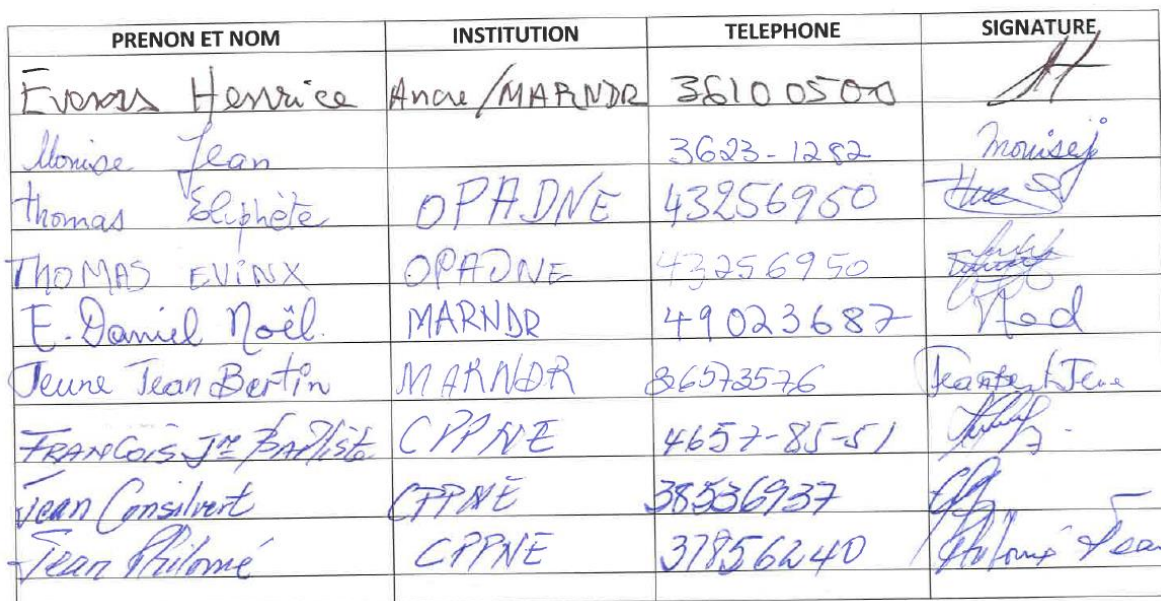 PRENON ET NOM INSTITUTION TELEPHONE SIGNATURE
Evens Henrice Ancre/MARNDR 36100500
Monise Jean 3623-1282 Monisej
Thomas Eliphète OPADNE 43256950
THOMAS EVINX OPADNE 43256950
E. Daniel Noël. MARNDR 49023687 Ned
Jeune Jean Bertin MARNDR 36573576 Jeanbert Jeune
FRANCOIS Jn BAPtiste CPPNE 4657-85-51
Jean Consilvert CPPNE 38536937
Jean Philomé CPPNE 37856240 Philomé Jean